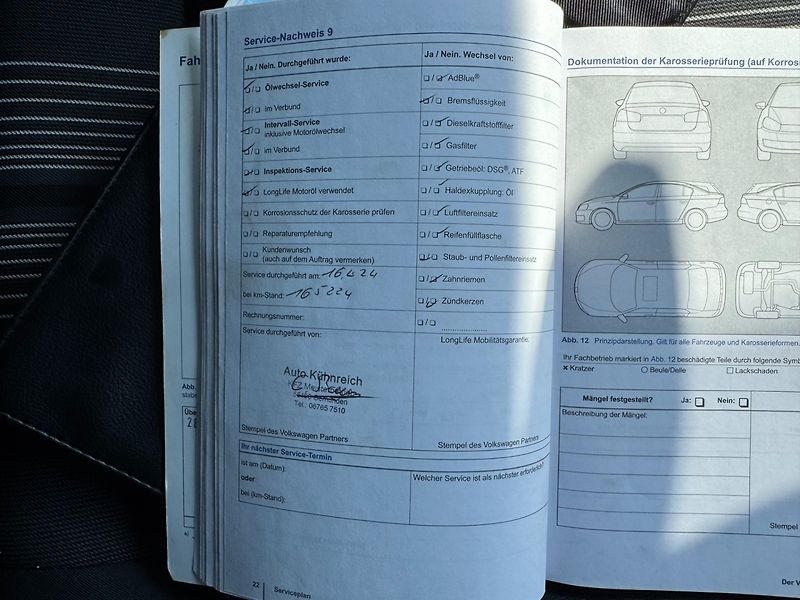 Fah
Service-Nachweis 9
Ja / Nein. Durchgeführt wurde:
Ölwechsel-Service
im Verbund
Intervall-Service
inklusive Motorölwechsel
im Verbund
Inspektions-Service
LongLife Motoröl verwendet
Korrosionsschutz der Karosserie prüfen
Reparaturempfehlung
Kundenwunsch
(auch auf dem Auftrag vermerken)
Service durchgeführt am:
bei km-Stand: 165224
Rechnungsnummer:
Service durchgeführt von:
Auto Kühnreich
Tel.: 06765 7510
Stempel des Volkswagen Partners
Ja / Nein. Wechsel von:
AdBlue®
Bremsflüssigkeit
Dieselkraftstofffilter
Gasfilter
Getriebeöl: DSG®, ATF
Haldexkupplung: Öl
Luftfiltereinsatz
Reifenfüllflasche
Staub- und Pollenfiltereinsatz
Zahnriemen
Zündkerzen
LongLife Mobilitätsgarantie:
Stempel des Volkswagen Partners
Ihr nächster Service-Termin
ist am (Datum):
oder
bei (km-Stand):
Welcher Service ist als nächster erforderlich?
22 Serviceplan
Dokumentation der Karosserieprüfung (auf Korros
Abb. 12 Prinzipdarstellung. Gilt für alle Fahrzeuge und Karosserieformen.
Ihr Fachbetrieb markiert in Abb. 12 beschädigte Teile durch folgende Symb
Kratzer Beule/Delle Lackschaden
Mängel festgestellt? Ja: Nein:
Beschreibung der Mängel:
Stempel
Der V